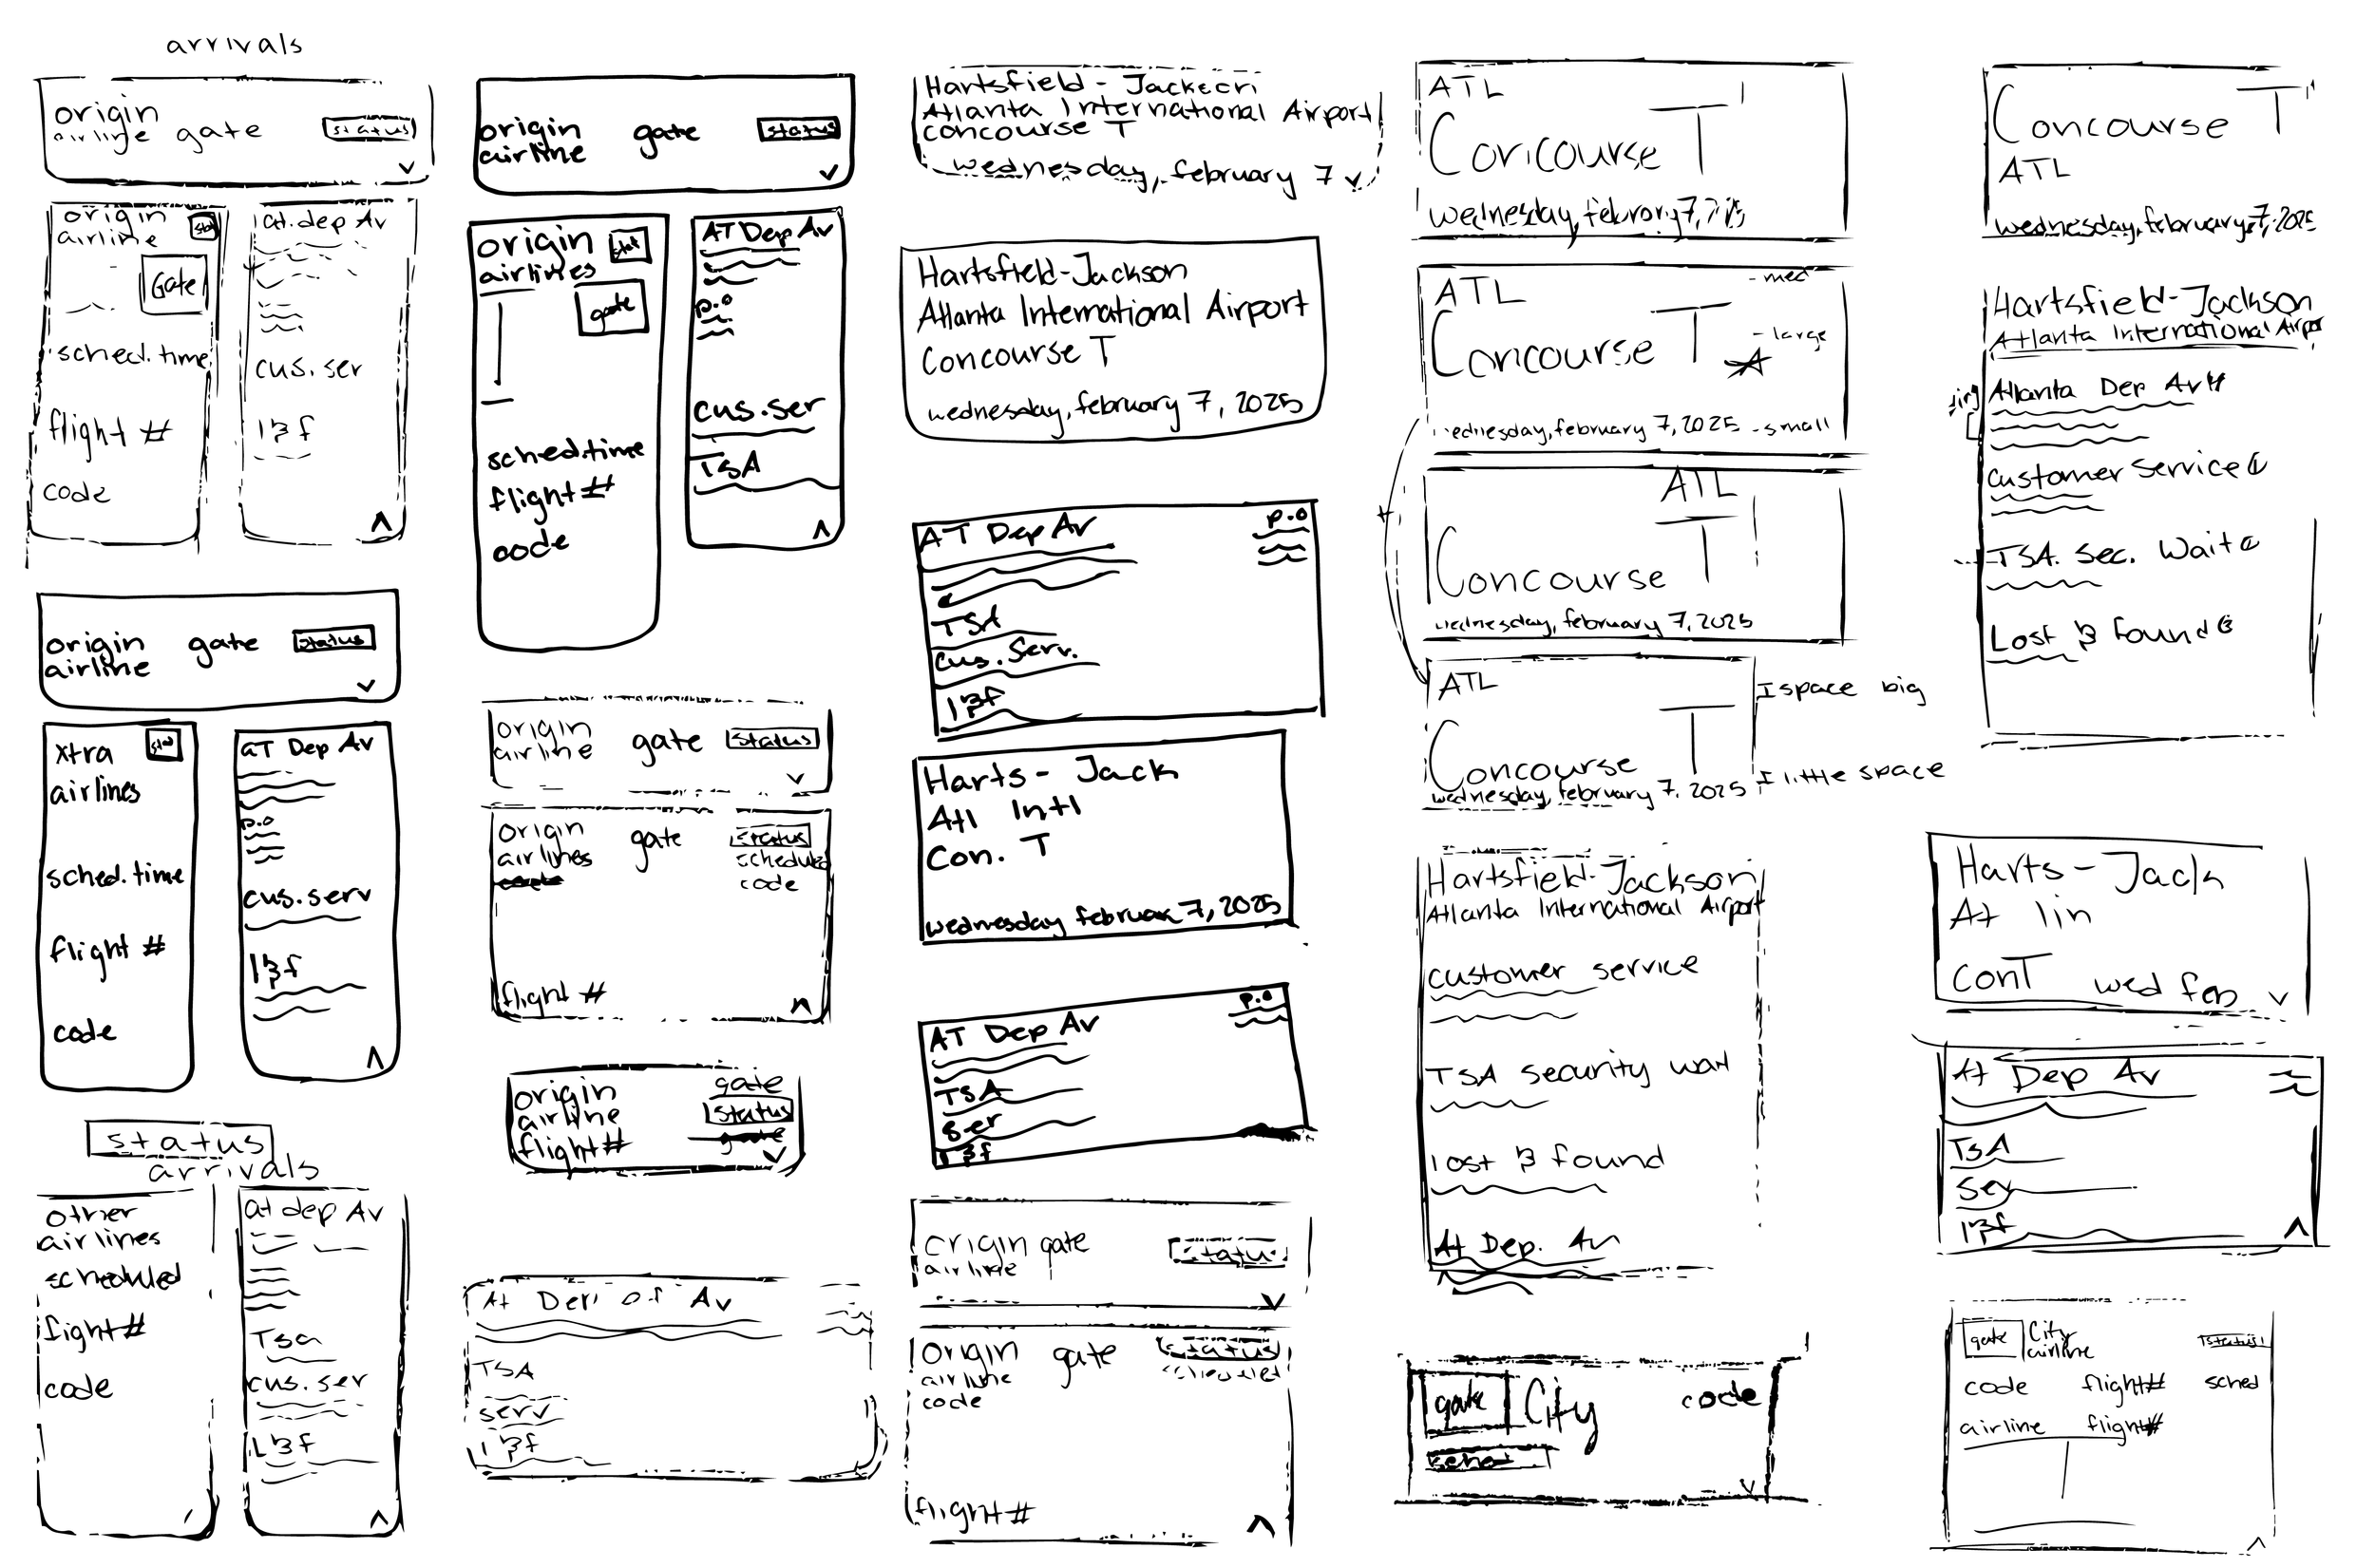 arrivals
origin
airline gate
status
origin
airline
Gate
sched.time
flight #
code
at.dep Av
cus.ser
l&f
origin gate status
airline
xtra
airlines
sched.time
flight #
code
aT Dep Av
p.o
cus.serv
l&f
status
arrivals
other
airlines
scheduled
fight #
code
at dep Av
Tsa
cus.ser
L&f
origin gate status
airline
origin
airlines
gate
sched.time
flight #
code
AT Dep Av
p.o
cus.ser
TSA
origin gate status
airline
origin gate status
airlines scheduled
code
flight #
origin gate
airline status
flight # gate
At Dep of Av
TSA
serv
l&f
Hartsfield -
Atlanta International Airport
concourse T
wednesday, february 7
Hartsfield-Jackson
Atlanta International Airport
Concourse T
wednesday, february 7, 2025
AT Dep Av p.o
TSA
Cus. Serv.
l&f
Harts - Jack
Atl Intl
Con. T
wednesday 7, 2025
AT Dep Av p.o
TSA
ser
l&f
origin gate status
airline
origin gate status
airline
code
flight #
ATL
Concourse T
wednesday, 7,
ATL - med
Concourse T - large
wednesday, february 7, 2025 - small
ATL
Concourse T
wednesday, february 7, 2025
ATL
Concourse T
wednesday, february 7, 2025
I space big
I little space
Hartsfield-Jackson
Atlanta International Airport
customer service
TSA security wait
lost & found
At Dep. Av
gate City code
sched
Concourse T
ATL
wednesday, february 7, 2025
Hartsfield-Jackson
Atlanta International Airpor
Atlanta Dep Av
Customer Service
TSA. Sec. Wait
Lost & found
Harts - Jack
At lin
conT wed feb
At Dep Av
TSA
Ser
l&f
gate City status
airline
code flight# sched
airline flight#